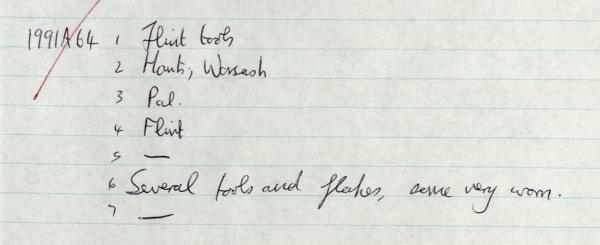 1991A64 1 Flint tools
2 Hants, Warsash
3 Pal.
4 Flint
5 —
6 Several tools and flakes, some very worn.
7 —